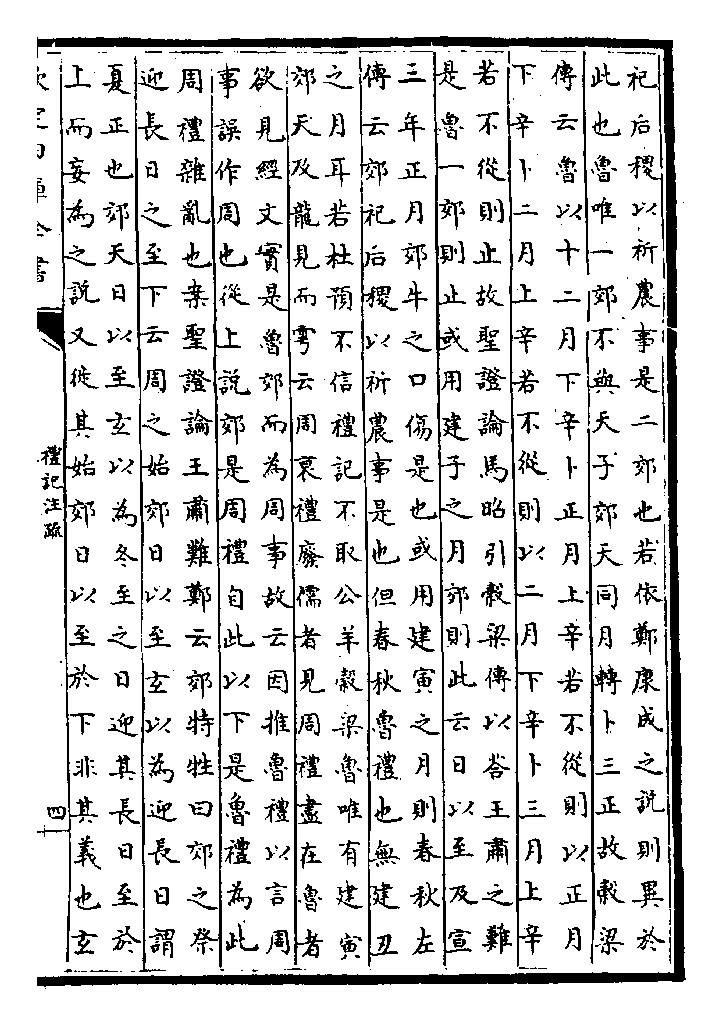 祀后稷以祈農事是二郊也若依鄭康成之說則異於
此也魯唯一郊不與天子郊天同月轉卜三正故穀梁
傳云魯以十二月下辛卜正月上辛若不從則以正月
下辛卜二月上辛若不從則以二月下辛卜三月上辛
若不從則止故聖證論馬昭引穀梁傳以荅王肅之難
是魯一郊則止或用建子之月郊則此云日以至及宣
三年正月郊牛之口傷是也或用建寅之月則春秋左
傳云郊祀后稷以祈農事是也但春秋魯禮也無建丑
之月耳若杜預不信禮記不取公羊穀梁魯唯有建寅
郊天及龍見而雩云周衰禮廢儒者見周禮盡在魯者
欲見經文實是魯郊而為周事故云因推魯禮以言周
事誤作周也從上說郊是周禮自此以下是魯禮為此
周禮雜亂也案聖證論王肅難鄭云郊特牲曰郊之祭
迎長日之至下云周之始郊日以至玄以為迎長日謂
夏正也郊天日以至玄以為冬至之日迎其長日至於
上而妄為之說又徙其始郊日以至於下非其義也玄
欽定四庫全書
禮記注疏
四